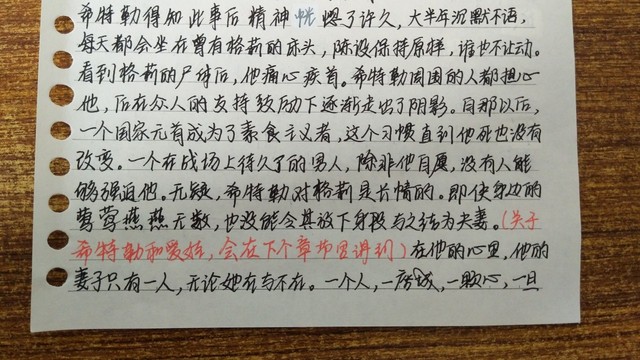 希特勒得知此事后精神恍惚了许久，大半年沉默不语，
每天都会坐在曾有格莉的床头，陈设保持原样，谁也不让动。
看到格莉的尸体后，他痛心疾首。希特勒周围的人都担心
他，后在众人的支持鼓励下逐渐走出了阴影。自那以后，
一个国家元首成为了素食主义者，这个习惯直到他死也没有
改变。一个在战场上待久了的男人，除非他自愿，没有人能
够强迫他。无疑，希特勒对格莉是长情的。即使身边的
莺莺燕燕无数，也没能令其放下身段与之结为夫妻。（关于
希特勒和爱娃，会在下个章节里讲到）在他的心里，他的
妻子只有一人，无论她在与不在。一个人，一座城，一颗心，一旦